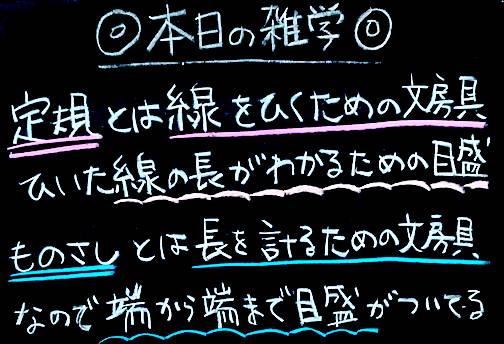 ◎本日の雑学◎
定規とは線をひくための文房具
ひいた線の長がわかるための目盛
ものさしとは長を計るための文房具
なので端から端まで目盛がついてる